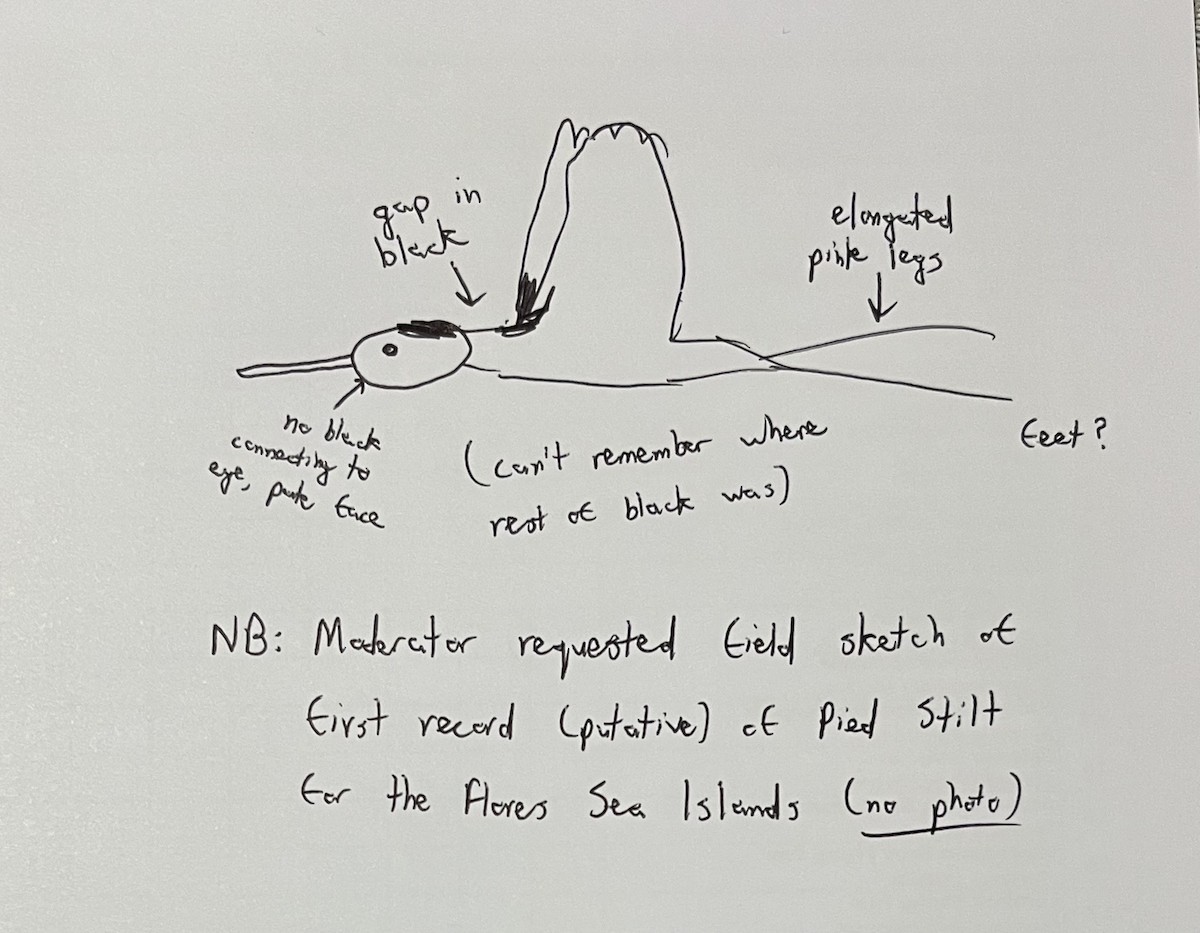 gap in
black
elongated
pink legs
no black
connecting to
eye, pale face
(can't remember where
rest of black was)
feet?
NB: Moderator requested field sketch of
first record (putative) of Pied Stilt
for the Flores Sea Islands (no photo)